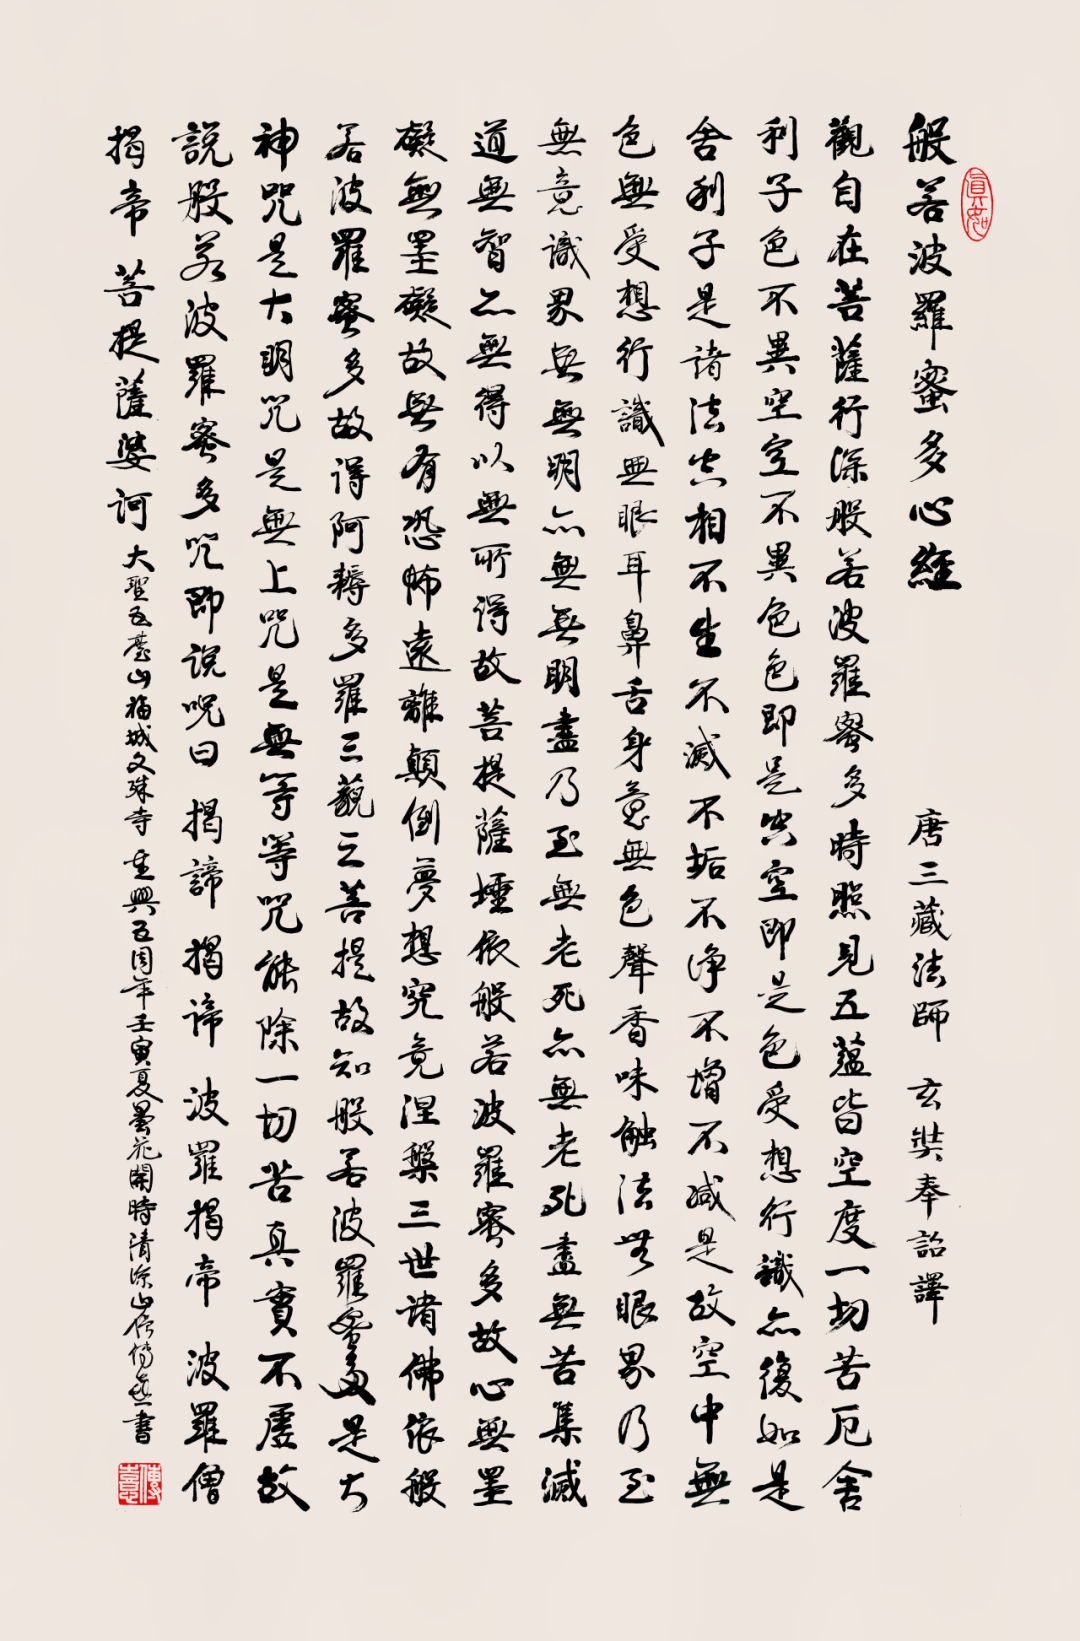 真如
般若波羅蜜多心經 唐三藏法師 玄奘奉詔譯
觀自在菩薩行深般若波羅蜜多時照見五蘊皆空度一切苦厄舍
利子色不異空空不異色色即是空空即是色受想行識亦復如是
舍利子是諸法空相不生不滅不垢不淨不增不減是故空中無
色無受想行識無眼耳鼻舌身意無色聲香味触法無眼界乃至
無意識界無無明亦無無明盡乃至無老死亦無老死盡無苦集滅
道無智亦無得以無所得故菩提薩埵依般若波羅蜜多故心無罣
礙無罣礙故無有恐怖遠離顛倒夢想究竟涅槃三世諸佛依般
若波羅蜜多故得阿耨多羅三藐三菩提故知般若波羅蜜多是大
神咒是大明咒是無上咒是無等等咒能除一切苦真實不虛故
說般若波羅蜜多咒即說呪曰 揭諦 揭諦 波羅揭帝 波羅僧
揭帝 菩提薩婆訶 大聖五臺山梅城文殊寺 重興五周年壬寅夏曇花開時清涼山書